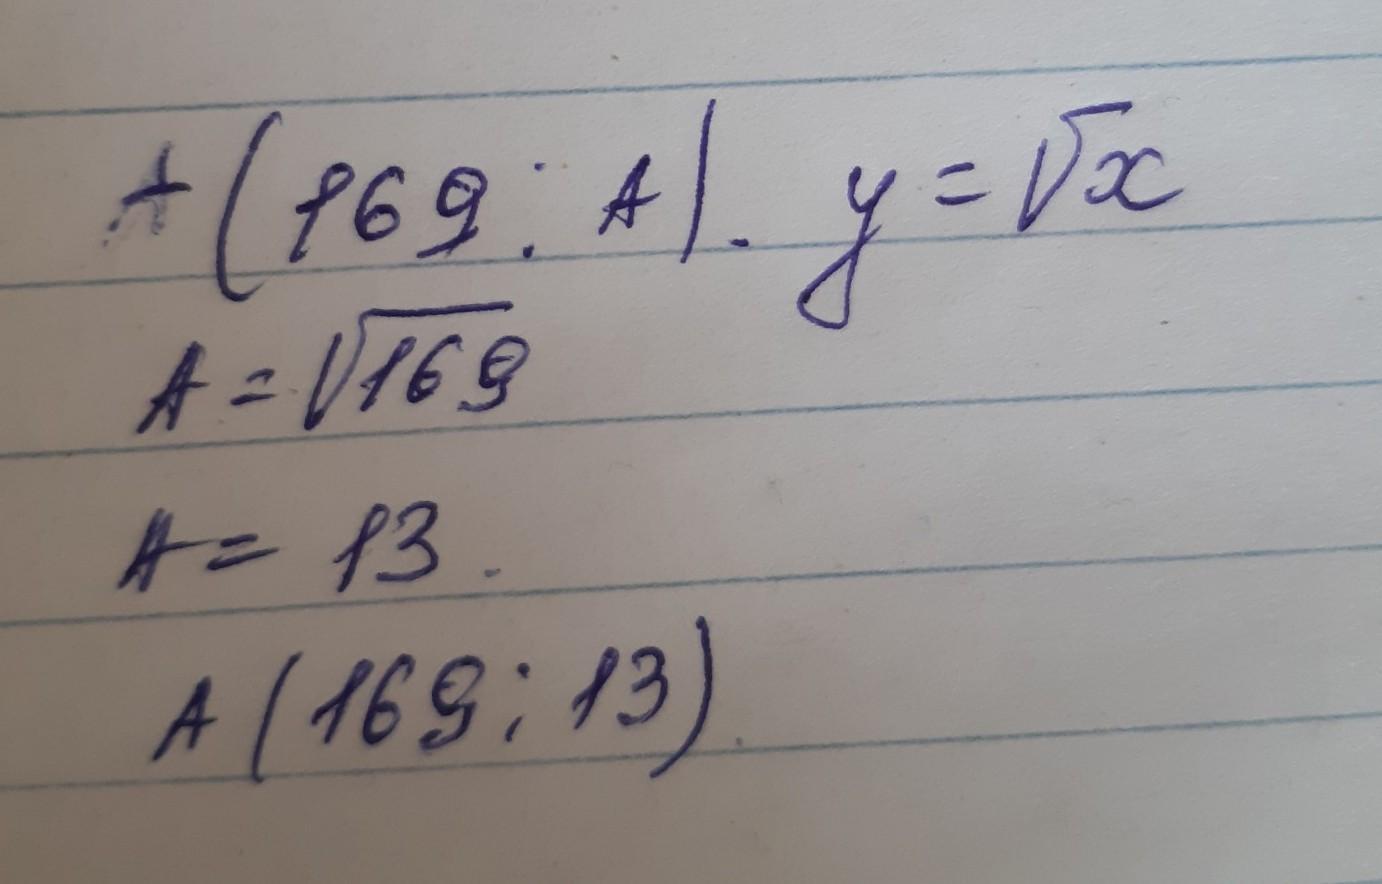 A(169; A). y = √x
A = √169
A = 13.
A(169; 13).